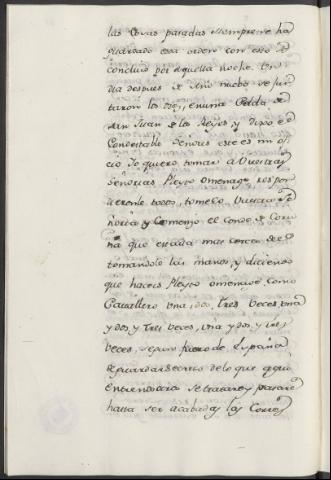 las Cosas pasadas siempre se ha
guardado esa orden con esto se
concluio por aquella noche. Un
dia despues de Año nuebo se jun
taron los doze, en una Celda de
San Juan de los Reyes y dixo el
Condestable Señores este es mi ofi
cio Yo quiero tomar a Vuestras
Señorias Pleyto omenage respon
dieronle todos, tomelo Vuestra Se
ñoria y Comenzo el Conde de Coru
ña que estaba mas cerca de el
tomandole las manos, y diciendo
que haceis Pleyto omenage como
Caballero una, dos, tres veces, una
y dos, y tres veces, una y dos, y tres
veces, segun fuero de España
de guardar secreto de lo que aqui
entre nosotros se tratare y pasare
hasta ser acabadas las Cortes